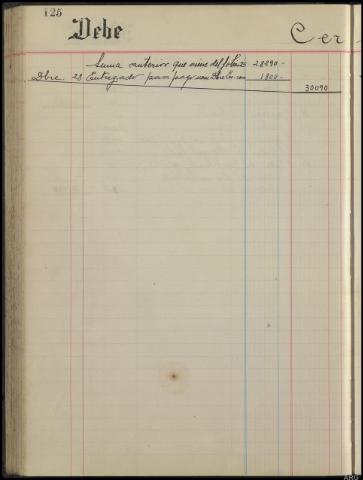 125
Debe
Cer
Suma anterior que viene del folio 28290-
Dbre. 28 Entregado para pago en 1800-
30090
ARG